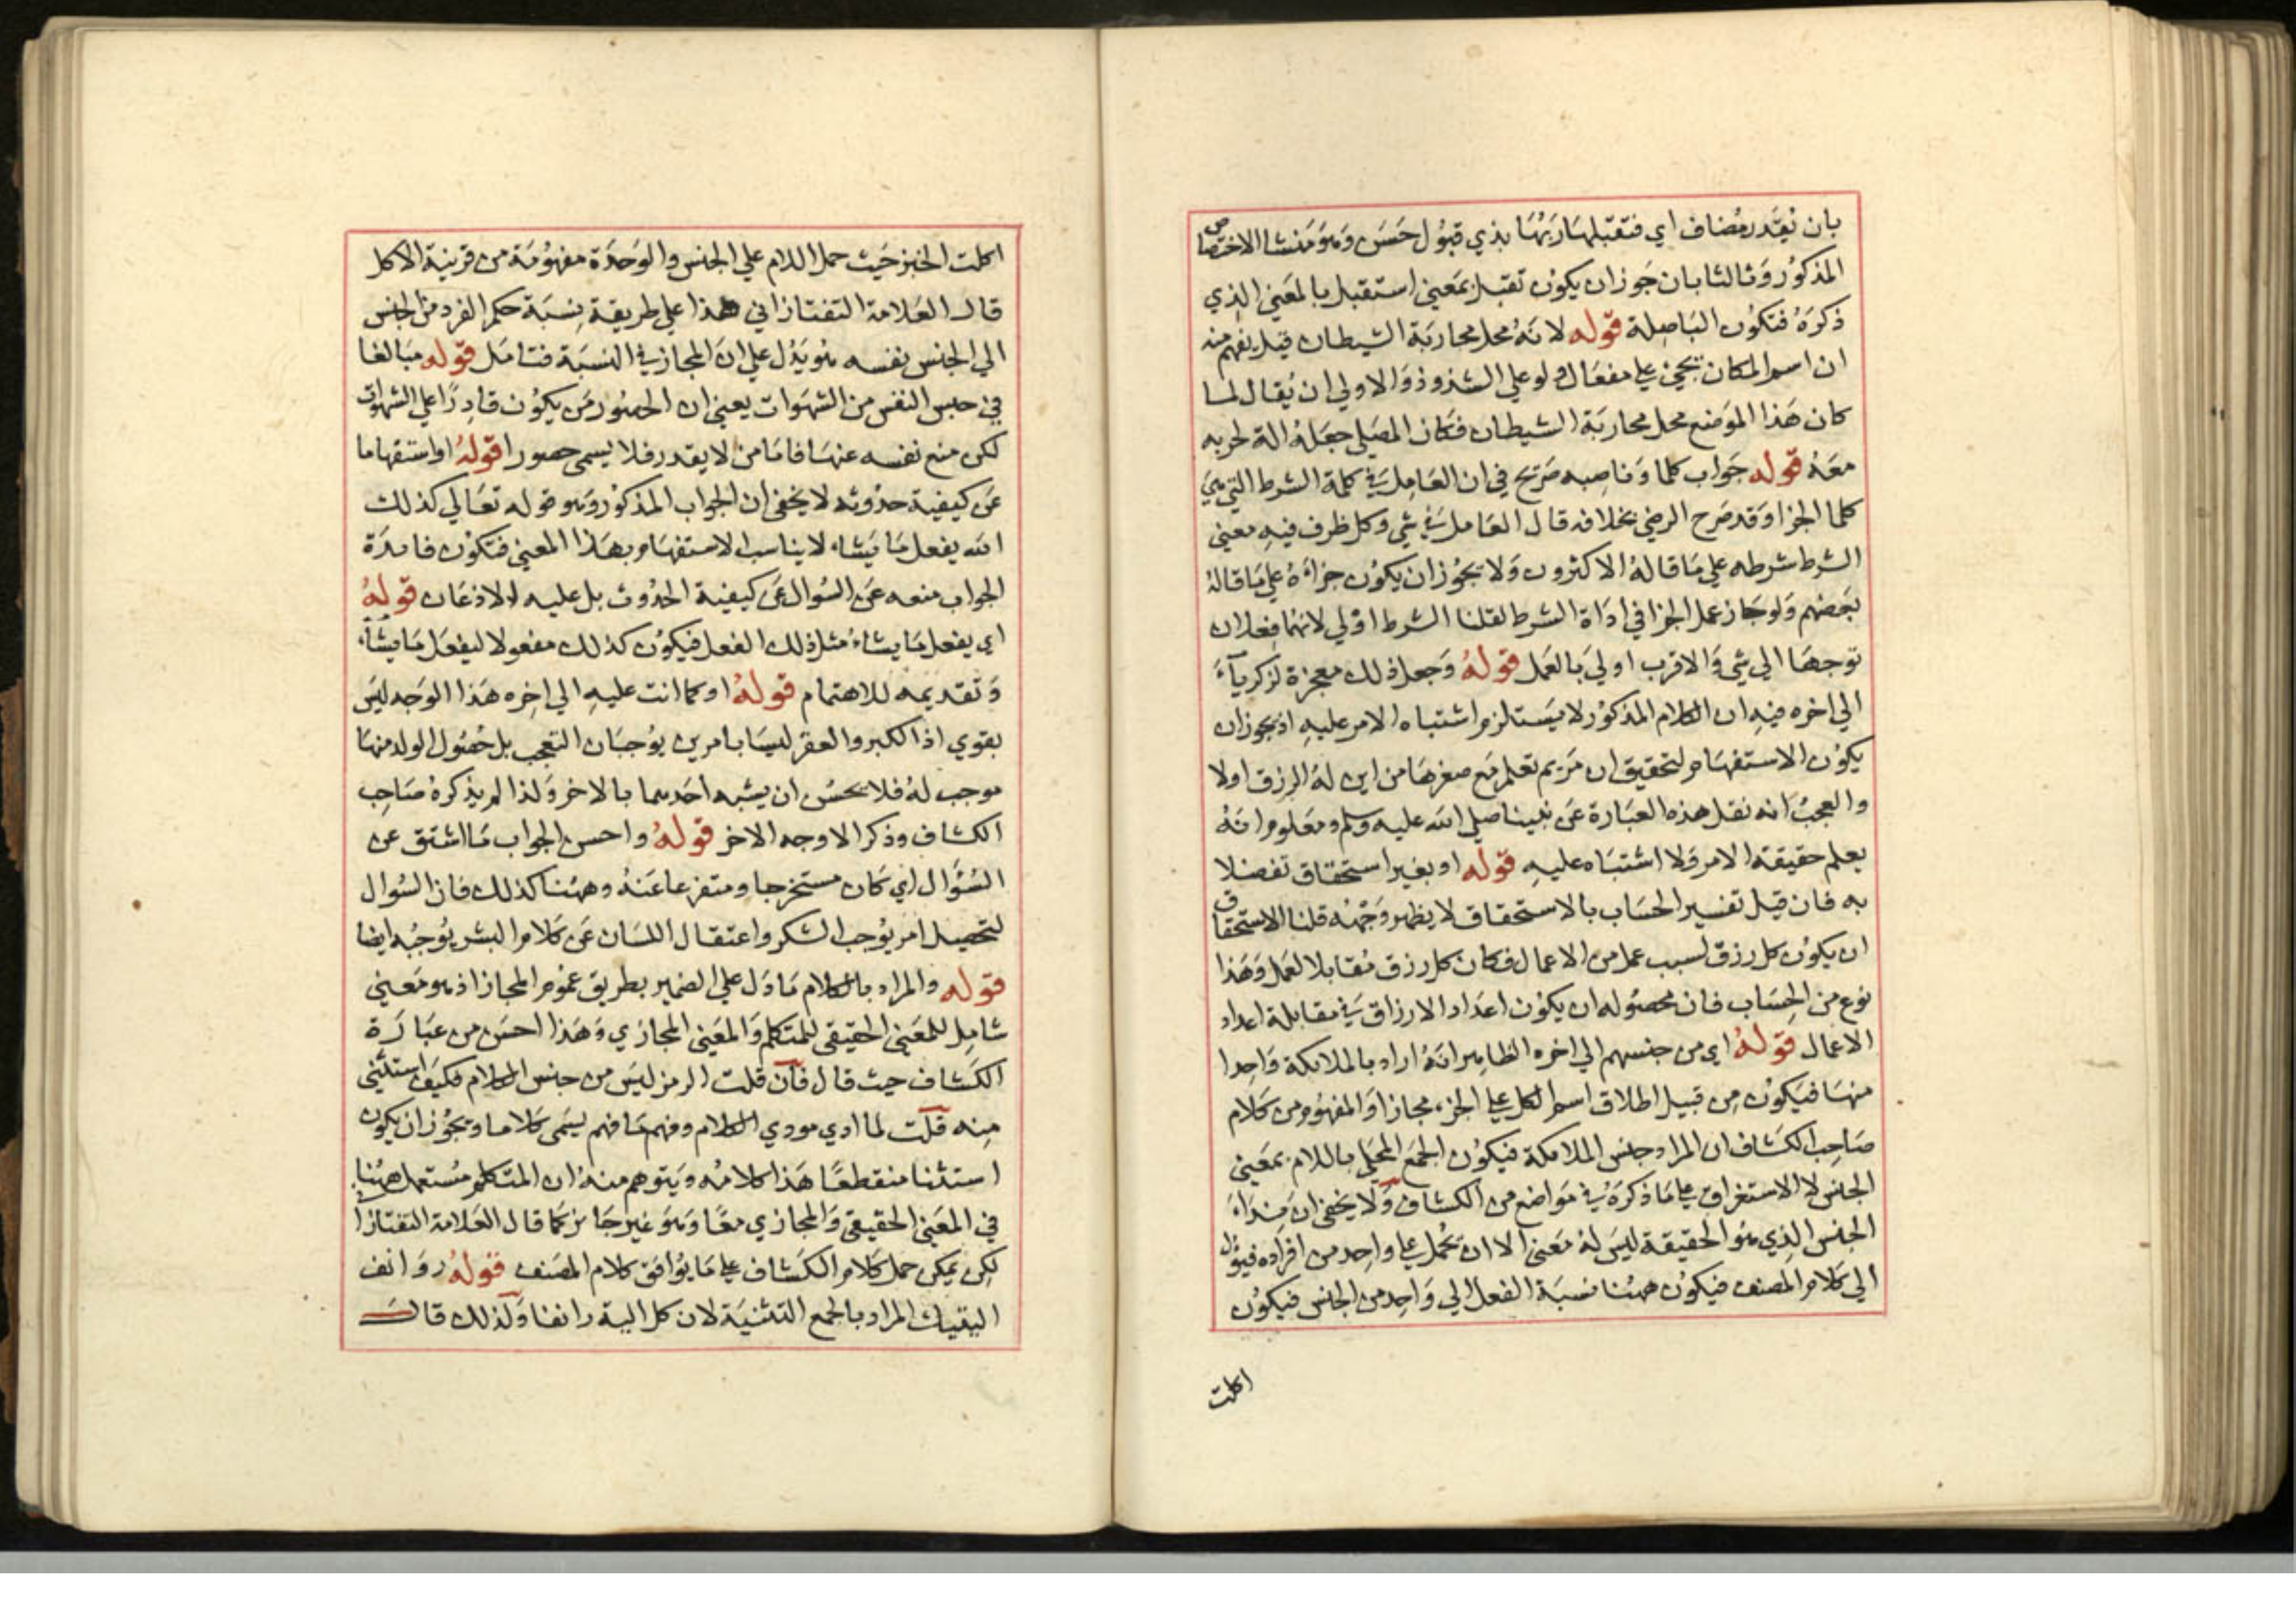 بان نُقدر مُضاف اي فتقبلها رَبُّها بذي قبُول حَسَن وَهوَ مَنشا الاختصاص
المذكوُر وَثالثا بان جَوز ان يكوُن تقبل بمَعني استقبل بالمعَني الذي
ذكرَهُ فتكوُن البَا صلة قوله لانهُ محل محاربَة الشيطان قيل يفهم منه
ان اسم المكان يجئ علي مفعَال ولو علي الشذوذ وَالاولي ان يُقال لما
كان هَذا الموَضع محل محاربَة الشيطان فكان المصَلي جعَلهُ الة لحربه
معَهُ قوله جَواب كلما وَناصِبه صَريح في ان العَامِل في كلمة الشرط التي هي
كلما الجزا وَقد صَرح الرضي بخلافه قال العَامل في متي وكل ظرف فيهِ معني
الشرط شرطه علي مَا قالهُ الاكثرون وَلا يجوُز ان يكوُن جزاءَهُ علي مَا قالهُ
بَعضهم وَلو جَاز عمل الجزا في ادَاة الشرط لقلنا الشرط اوْلي لانهُما فِعلان
توجهَا الي شي وَالاقرب اوليَ بالعَمل قولهُ وَجعل ذلك معجزة لزكرياءَ
الي اخره فيهِ ان الكلام المذكوُر لا يَستلزم اشتباه الامر عليهِ اذ يجوز ان
يكوُن الاستفهَام لتحقيق ان مَريم تعلم مَع صغرهَا من اين لهُ الرزق اولا
والعجبُ انه نقل هذه العبَارة عَن نبينا صلي الله عليه وسلم ومَعلوم انهُ
يعلم حقيقة الامر وَلا اشتبَاه عليهِ قوله او بغير استحقاق تفضلا
به فان قيل تفسير الحسَاب بالاستحقاق لا يظهر وَجْهُه قلنا الاستحقاق
ان يكوُن كل رزق لسبب عمل من الاعمال فكان كل رزق مُقابلا لعمَل وَهَذا
نوع من الحِسَاب فان محصُوله ان يكوُن اعدَاد الارزاق في مقابلة اعداد
الاعمال قولهُ اي من جنسهم الي اخره الظاهر انهُ اراد بالملائكة وَاحِدا
منهَا فيَكوُن مِن قبيل اطلاق اسم الكل علي الجزء مجازا وَالمفهُوم من كلام
صَاحِب الكشاف ان المراد جنس الملائكة فيكوُن الجمَع المحَلي باللام بمَعني
الجنس لا الاستغراق علي مَا ذكرَهُ في مَواضع من الكشاف وَلا يخفي ان نِدَاءَ
الجنس الذِي هُو الحقيقة ليَس لهُ مَعني الا ان يحُمل علي واحِد من افراده فيؤل
الي كلام المصنف فيكوُن ههُنا نسبَة الفعل الي وَاحِد من الجنس فيكوُن
اكلت
اكلت الخبز حَيث حمل اللام علي الجنس والوَحدَة مفهوُمَة من قرينة الاكل
قال العَلامة التفتازاني هذا علي طريقة نِسبَة حكم الفرد من الجنس
الي الجنس نفسه هُو يَدُل علي انَ المجاز في النسبَة فتامَل قوله مبَالغا
في حبس النفس من الشهَوات يعني ان الحصُور مَن يكوُن قادِرًا علي الشهوات
لكن منع نفسه عنهَا فامَا من لا يقدر فلا يسمي حصورا قولهُ او استفهاما
عَن كيفية حدُوثه لا يخفي ان الجواب المذكوُر وَهو قوله تعَالي كذلك
الله يفعل مَا يَشاء لا يناسب الاستفهام بهَذا المعني فتكوُن فائدَة
الجواب منعه عَن السُوال عَن كيفية الحدُوث بل عليه الاذعَان قولهُ
اي يفعل مَا يشاءُ مثل ذلك الفعل فيكوُن كذلك مفعولا ليفعَل مَا يشاء
وَتقديمه للاهتمام قولهُ او كما انت عليهِ الي اخِره هَذا الوَجه ليَس
بقوي اذ الكبر والعقر ليسَا بامرين يوُجبَان التعجب بل حُصُول الولد منهَا
موجب لهُ فلا يحسُن ان يشبه احَدهما بالاخر وَلذا لم يذكرهُ صَاحِب
الكشاف وذكر الاوجه الاخر قولهُ واحسن الجواب مَا اشتق عن
السُؤال اي كان مستخرجا ومتفرعا عَنهُ وههُنا كذلك فان السُوال
لتحصيل امر يوُجب الشكر واعتقال اللسَان عَن كلام البشر يوُجبُه ايضا
قوله والمراد بالكلام مَا دَل علي الضمير بطريق عموُم المجاز اذ هو مَعني
شامِل للمعَني الحقيقي للمتكلم وَالمعَني المجازي وَهَذا احسَن من عبَارَة
الكشاف حيث قال فان قلت الرمز ليَس من جنس الكلام فكيَف استثني
مِنه قلت لما ادي مودي الكلام وفهم مَا فهم يسَمي كلاما ويجوُز ان يكون
استثنا منقطعًا هَذا كلامُه وَيتوهم منهُ ان المتكلم مُستعمل ههُنا
في المعَني الحقيقي وَالمجازي معًا وَهوَ غير جَائز كمَا قال العَلامة التفتازا
لكن يمكن حمل كلام الكشاف علي مَا يوُافق كلام المصَنف قولهُ روَانف
اليتيك المراد بالجمع التثنيَة لان كل الية رانفا وَلذلك قال